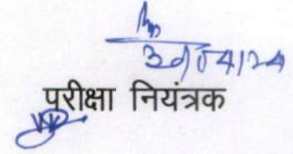 30/04/24
परीक्षा नियंत्रक